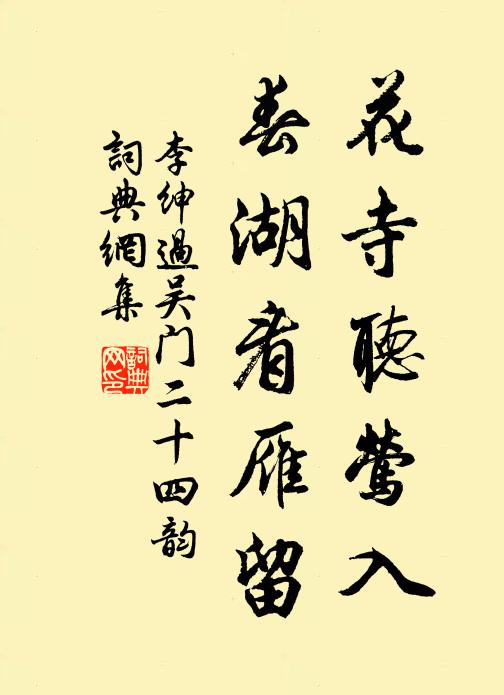 花寺聽鶯入
春湖看雁留
李紳過吴门二十四韵
詞典網集
詞典网印